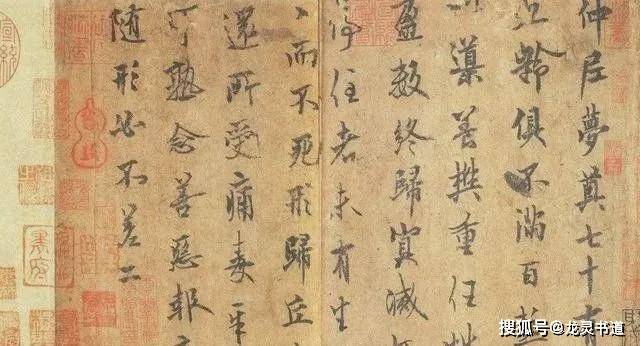 仲尼夢奠七十有
九齡俱不滿百
導養樊重任性
盈數終歸冥滅
停住者未有生
而不死形歸丘
還所受痛毒辛
可熟念善惡報
隨形必不差二
搜狐号@龙灵书道